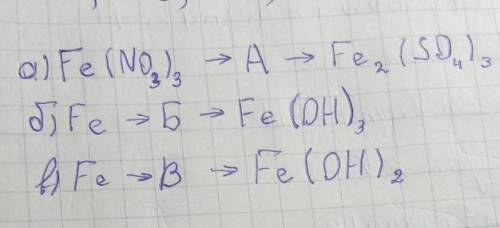 а) Fe(NO₃)₃ → А → Fe₂(SO₄)₃
б) Fe → Б → Fe(OH)₃
в) Fe → В → Fe(OH)₂